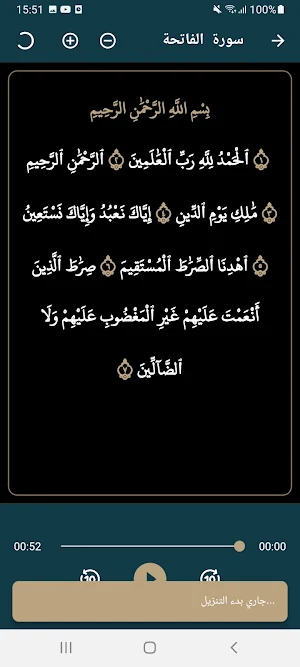 15:51 100%
سورة الفاتحة
بِسْمِ اللَّهِ الرَّحْمَٰنِ الرَّحِيمِ
١ ٱلْحَمْدُ لِلَّهِ رَبِّ ٱلْعَٰلَمِينَ ٢ ٱلرَّحْمَٰنِ ٱلرَّحِيمِ
٣ مَٰلِكِ يَوْمِ ٱلدِّينِ ٤ إِيَّاكَ نَعْبُدُ وَإِيَّاكَ نَسْتَعِينُ
٥ ٱهْدِنَا ٱلصِّرَٰطَ ٱلْمُسْتَقِيمَ ٦ صِرَٰطَ ٱلَّذِينَ
أَنْعَمْتَ عَلَيْهِمْ غَيْرِ ٱلْمَغْضُوبِ عَلَيْهِمْ وَلَا
ٱلضَّآلِّينَ ٧
00:52 00:00
10 10
جاري بدء التنزيل...